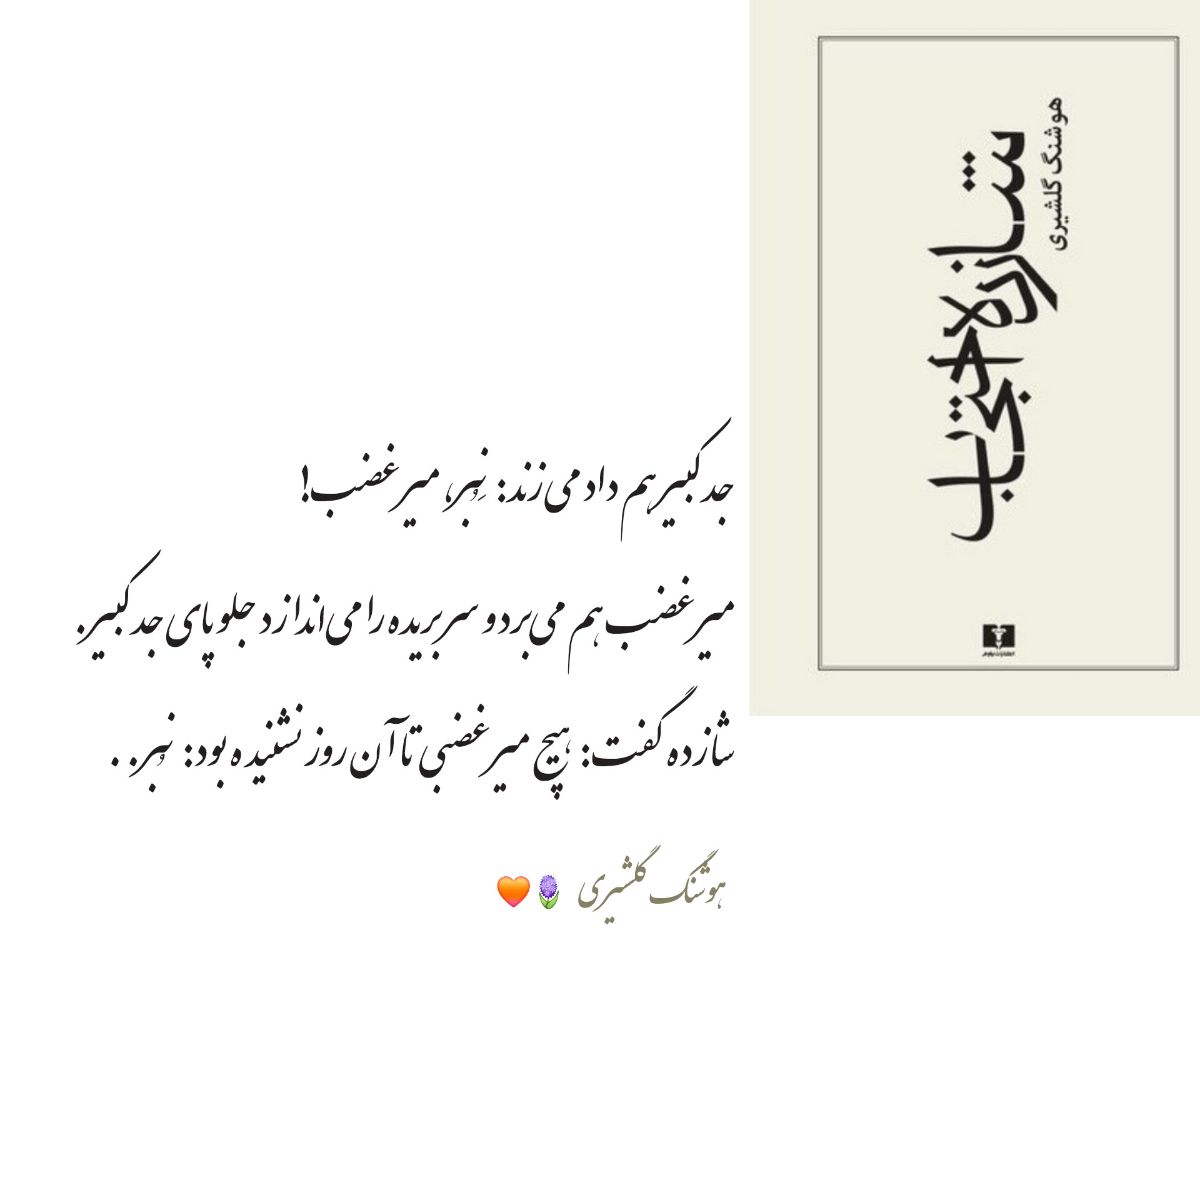 هوشنگ گلشیری
شازده احتجاب
جد کبیر هم داد می‌زند: نِبُر، میرغضب!
میرغضب هم می‌برد و سر بریده را می‌اندازد جلو پای جد کبیر.
شازده گفت: هیچ میرغضبی تا آن روز نشنیده بود: نبُر. .
هوشنگ گلشیری 🪻🧡